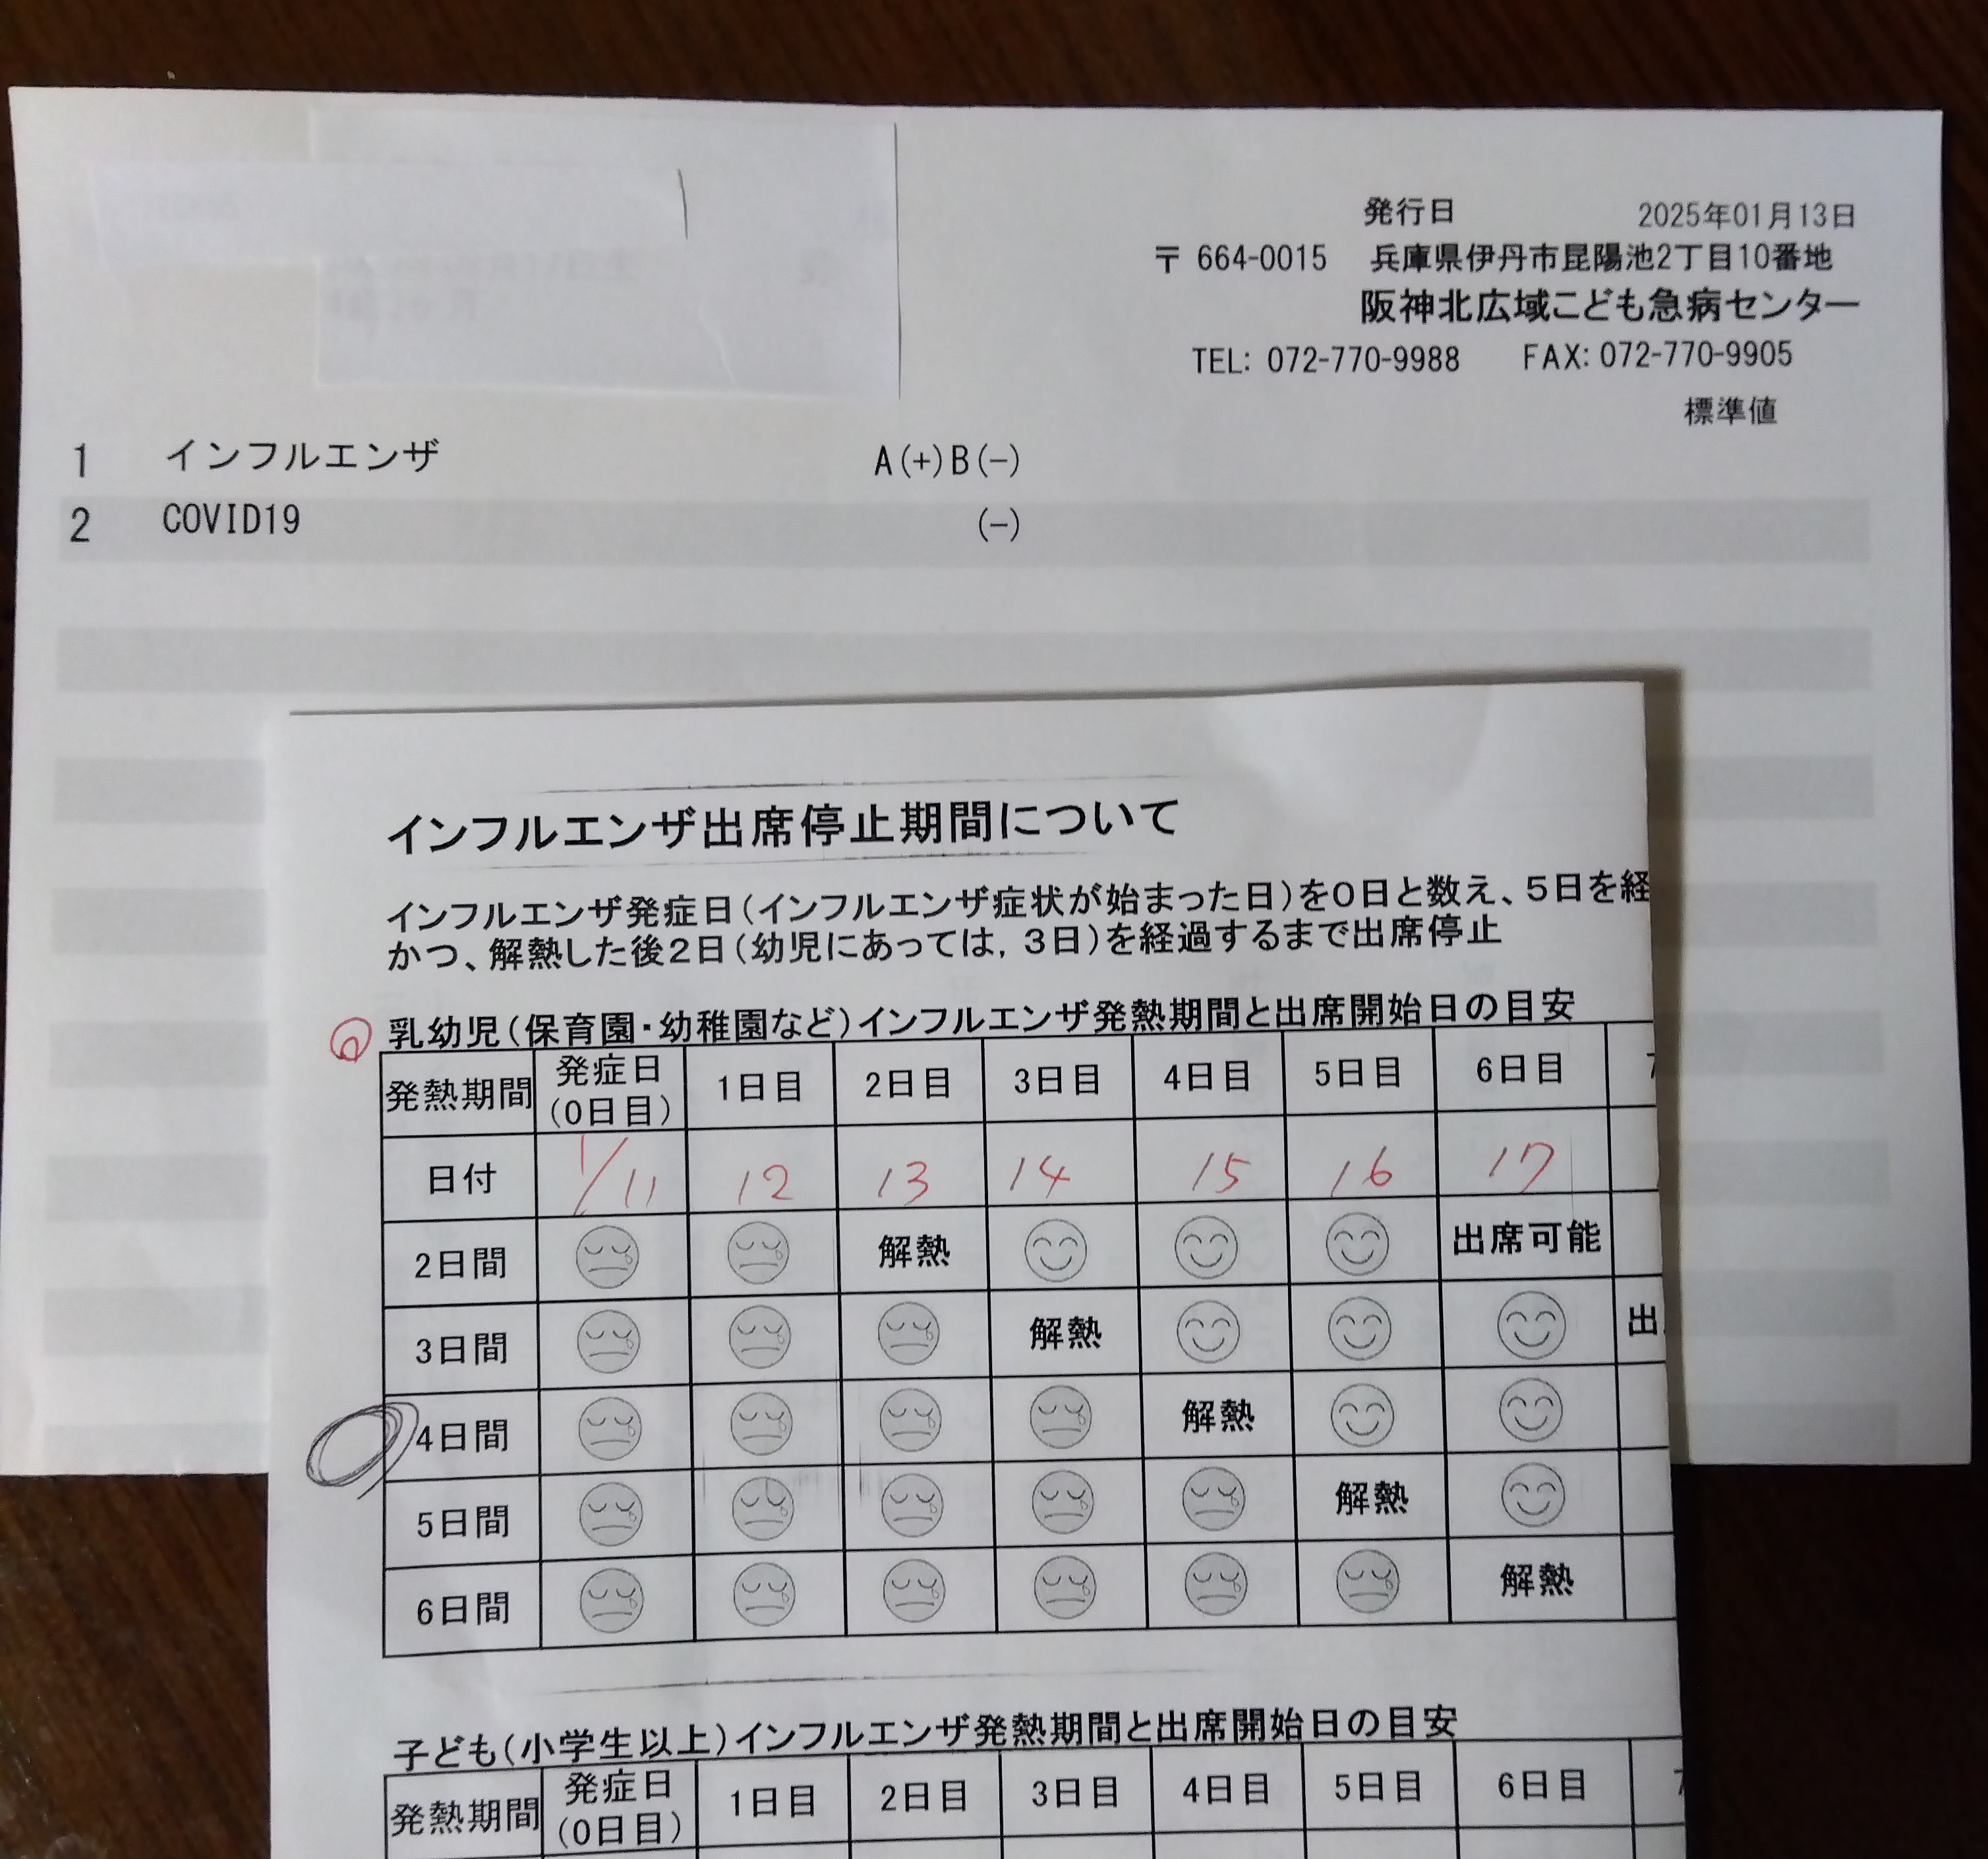 発行日 2025年01月13日
〒 664-0015 兵庫県伊丹市昆陽池2丁目10番地
阪神北広域こども急病センター
TEL: 072-770-9988 FAX: 072-770-9905
標準値
1 インフルエンザ A(+)B(-)
2 COVID19 (-)
インフルエンザ出席停止期間について
インフルエンザ発症日(インフルエンザ症状が始まった日)を0日と数え、5日を経
かつ、解熱した後2日(幼児にあっては,3日)を経過するまで出席停止
乳幼児(保育園・幼稚園など)インフルエンザ発熱期間と出席開始日の目安
発熱期間 発症日(0日目) 1日目 2日目 3日目 4日目 5日目 6日目 7
日付 1/11 12 13 14 15 16 17
2日間 解熱 出席可能
3日間 解熱 出
4日間 解熱
5日間 解熱
6日間 解熱
子ども(小学生以上)インフルエンザ発熱期間と出席開始日の目安
発熱期間 発症日(0日目) 1日目 2日目 3日目 4日目 5日目 6日目 7